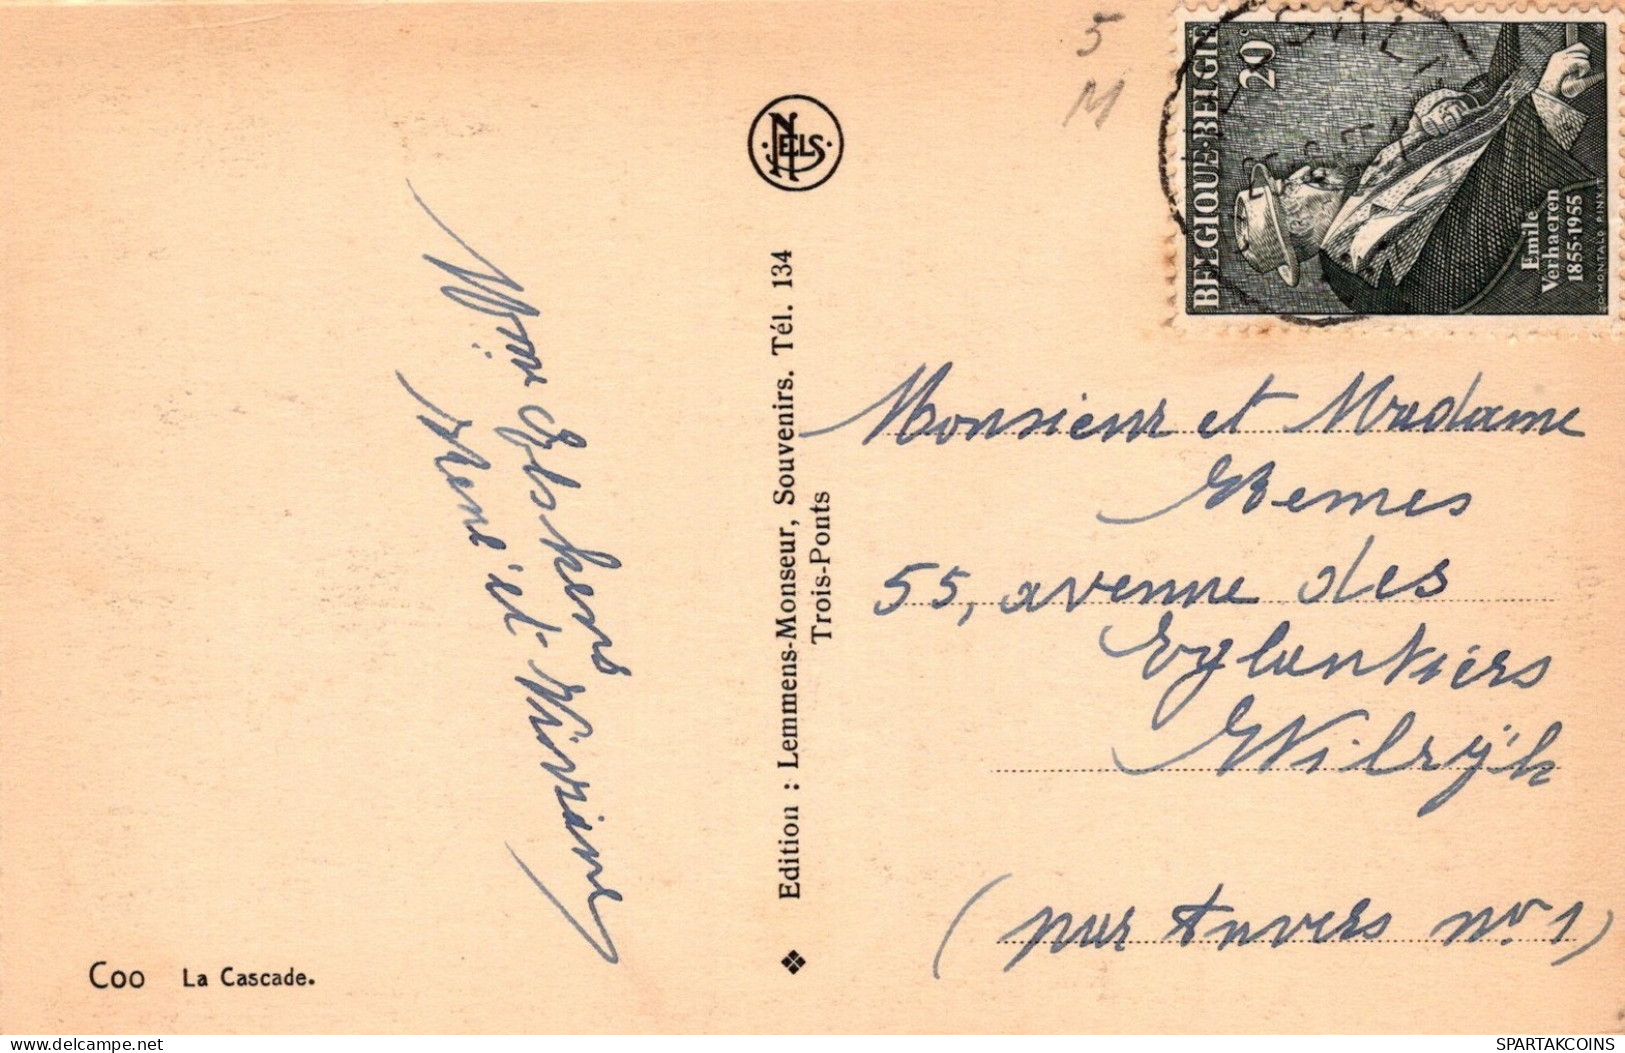 5
M
NELS
BELGIQUE·BELGIË
20c
Emile
Verhaeren
1855-1955
C. MONTALD PINXIT
Eyskens
René et Viviane
Edition : Lemmens-Monseur, Souvenirs. Tél. 134
Trois-Ponts
Monsieur et Madame
55, avenue des
Eglantiers
Wilrÿk
(par Anvers no 1)
Coo La Cascade.
SPARTAKCOINS https://www.delcampe.net